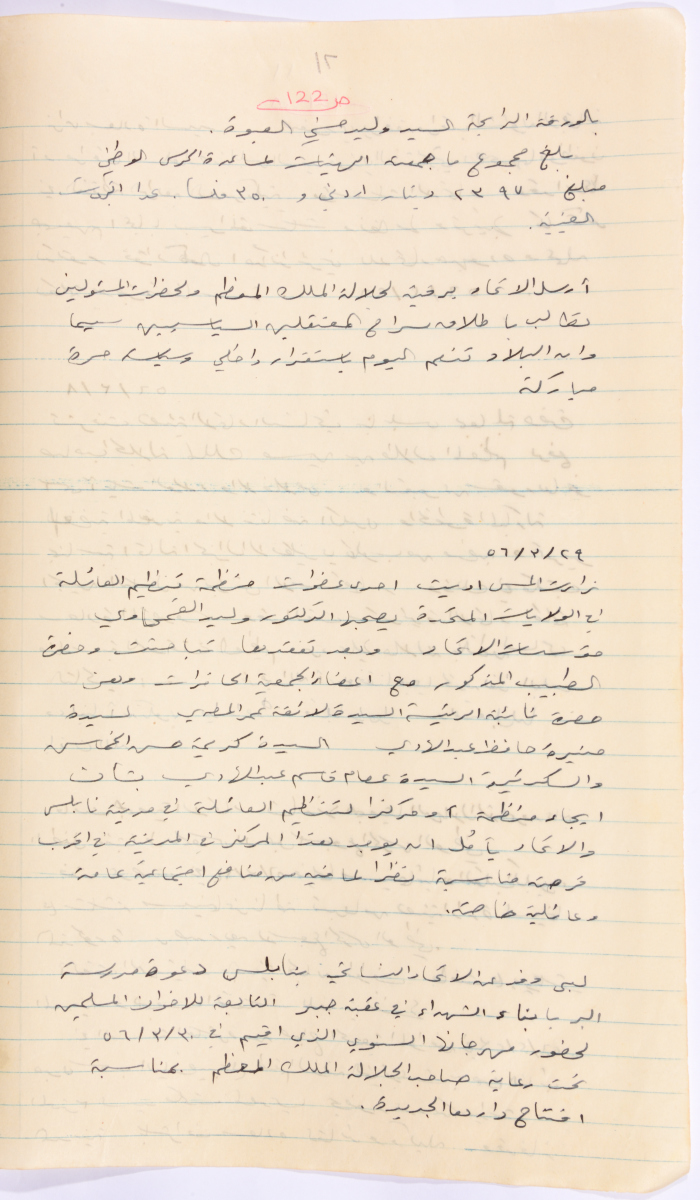 ١٢
ص 122
بالورقة الرابحة السيد وليد حسني العبوة .
بلغ مجموع ما جمعت الهيئات لمساعدة الحرس الوطني
مبلغ ٢٣٩٧ دينار اردني و ٣٥٠ فلسا . عدا التبرعات
العينية .
أرسل الاتحاد برقية لجلالة الملك المعظم ولحضرات المسئولين
تطالب باطلاق سراح المعتقلين السياسيين سيما
وان البلاد تنعم اليوم باستقرار داخلي وسياسة حرة
مباركة
٥٦/٣/٢٩
زارت المس اديت احدى عضوات منظمة تنظيم العائلة
في الولايات المتحدة يصحبها الدكتور وليد القمحاوي
مؤسسات الاتحاد وبعد تفقدها تباحثت وحضرة
الطبيب المذكور مع اعضاء الجمعية الحاضرات وهن
حضرة نائبة الرئيسة السيدة لائقة المصري السيدة
منيرة حافظ عبد الهادي السيدة كريمة حسن الخماش
والسكرتيرة السيدة عصام قاسم عبد الهادي بشأن
ايجاد منظمة أو مركزا لتنظيم العائلة في مدينة نابلس
والاتحاد يأمل ان يوجد هذا المركز في المدينة في اقرب
فرصة مناسبة نظرا لما فيه من منافع اجتماعية عامة
وعائلية خاصة .
لبى وفد من الاتحاد النسائي بنابلس دعوة مدرسة
البر بابناء الشهداء في عقبة جبر التابعة للاخوان المسلمين
لحضور مهرجانها السنوي الذي اقيم في ٥٦/٣/٣٠
تحت رعاية صاحب الجلالة الملك المعظم بمناسبة
افتتاح دارها الجديدة .